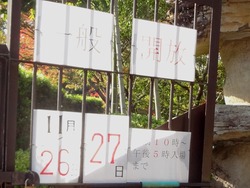 一般 開放
11月
26 27日
10時～
午後5時入場
まで